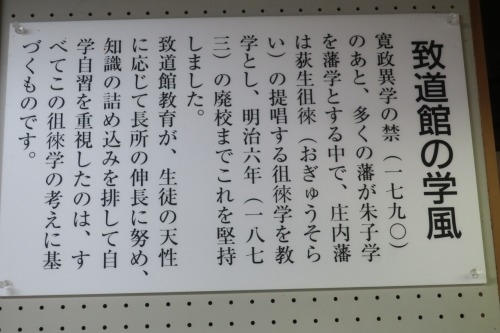 致道館の学風
寛政異学の禁（一七九〇）
のあと、多くの藩が朱子学
を藩学とする中で、庄内藩
は荻生徂徠（おぎゅうそら
い）の提唱する徂徠学を教
学とし、明治六年（一八七
三）の廃校までこれを堅持
しました。
致道館教育が、生徒の天性
に応じて長所の伸長に努め、
知識の詰め込みを排して自
学自習を重視したのは、す
べてこの徂徠学の考えに基
づくものです。